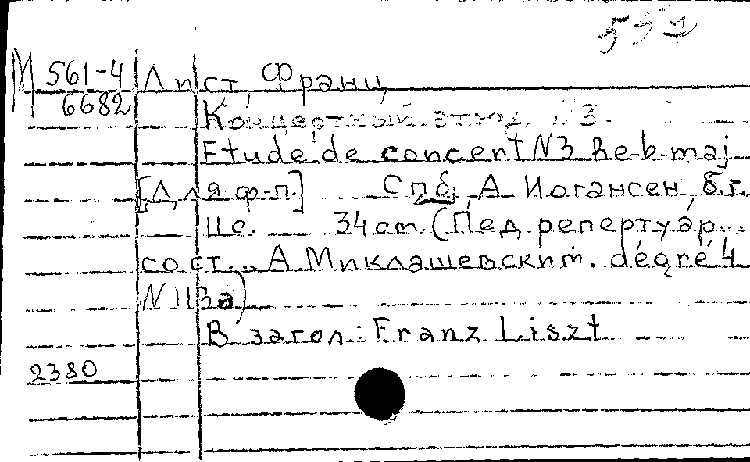 532
М 561-4 Лист, Франц
6682 Концертный этюд N3.
Etude de concert N3 Re b maj
[Для ф-п.] Спб, А. Иогансен, б.г.
11 с. 34 cm. (Пед. репертуар...
сост. А. Миклашевским. degré 4
N 113а)
В загол: Franz Liszt
2380